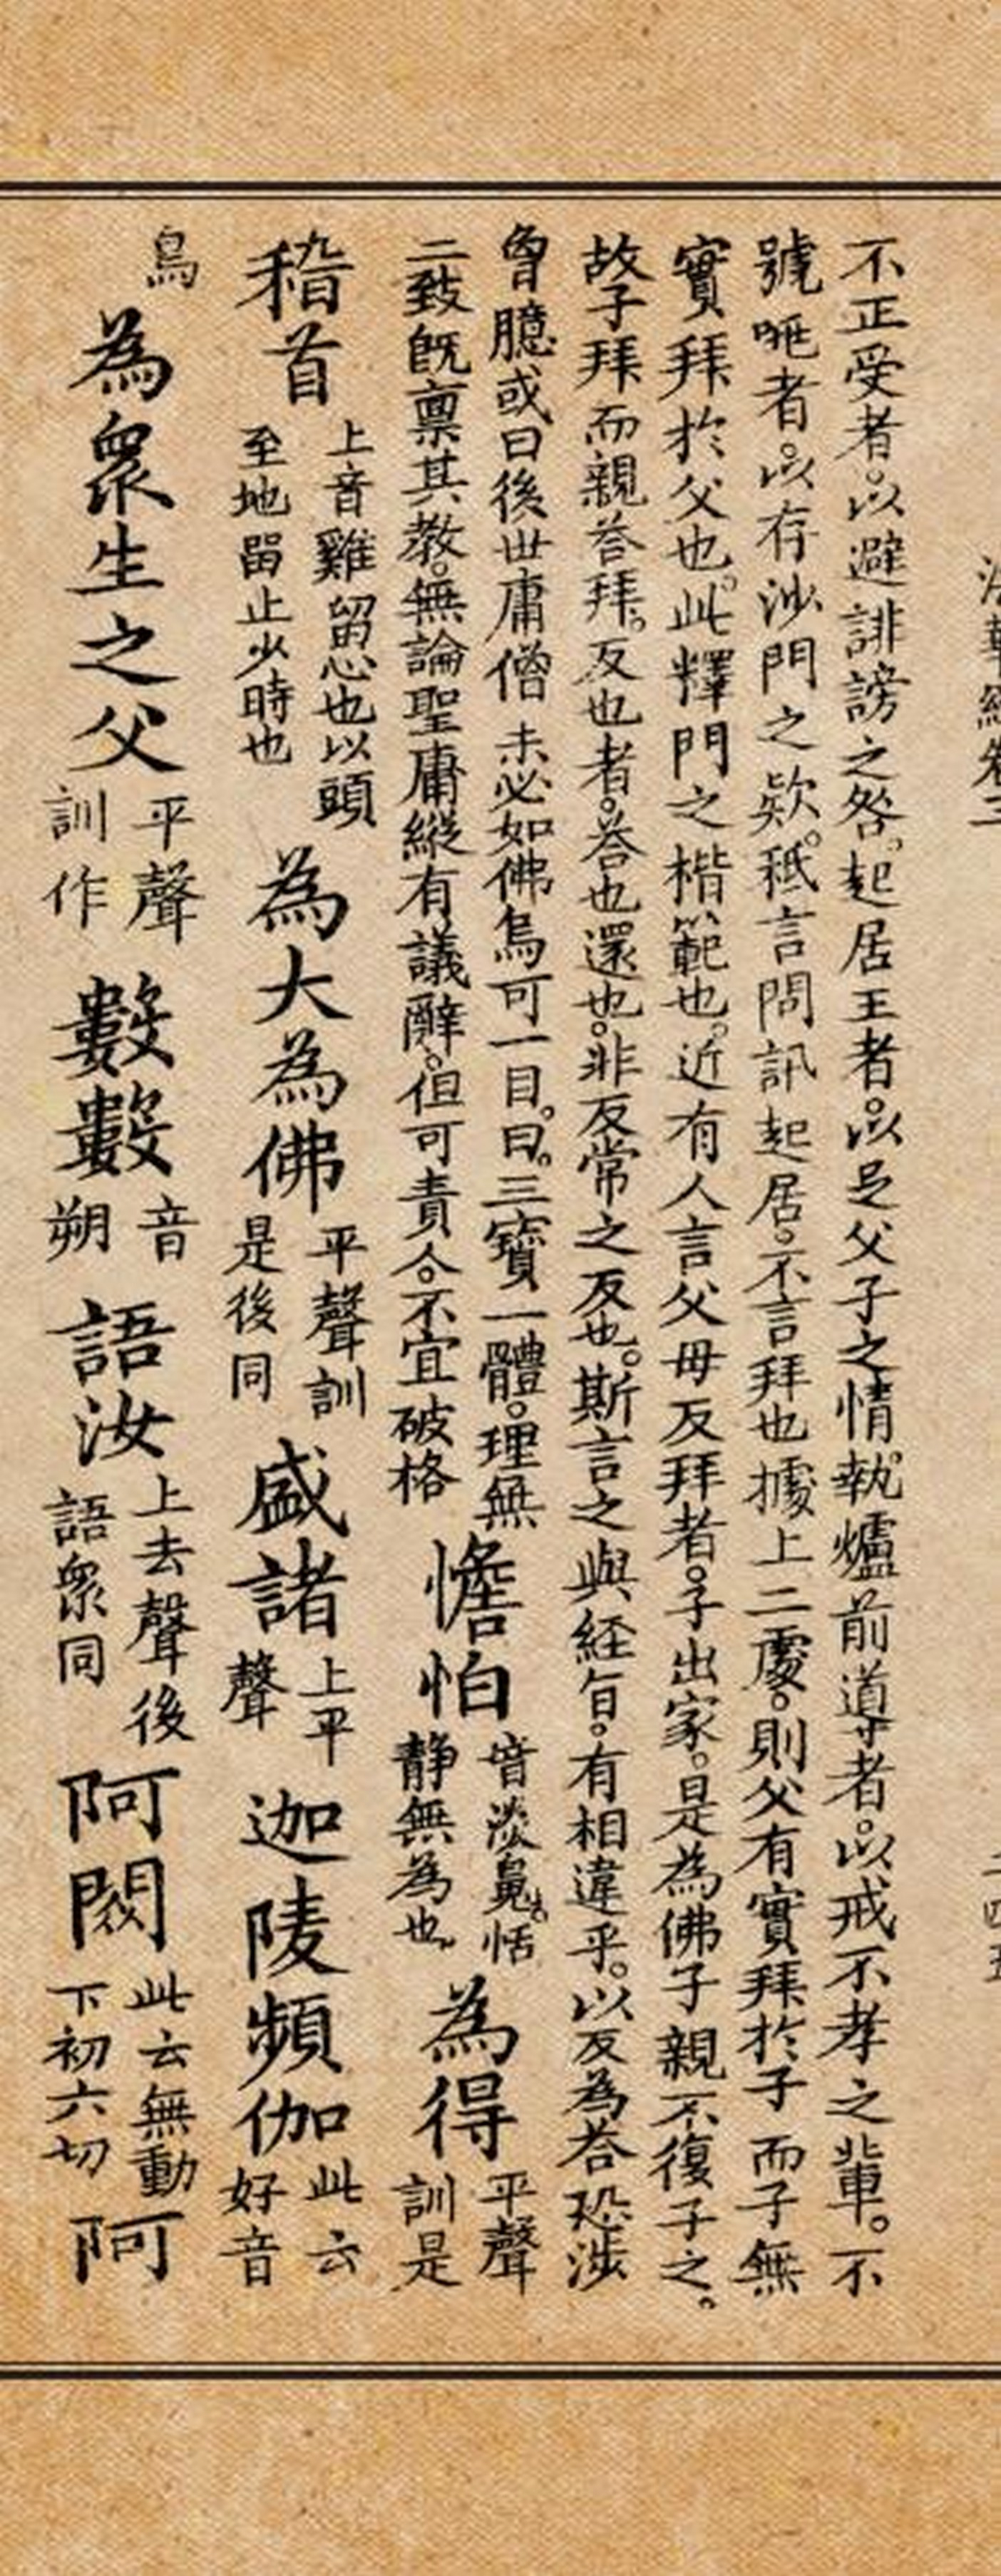 法華經卷三　二四五
不正受者。以避誹謗之咎。起居王者。以足父子之情。執爐前導者。以戒不孝之輩。不
號咂者。以存沙門之欵。秪言問訊起居。不言拜也據上二處。則父有實拜於子而子無
實拜於父也。此釋門之楷範也。近有人言父母反拜者。子出家。是為佛子親不復子之。
故子拜而親荅拜。反也者。荅也還也。非反常之反也。斯言之與経旨。有相違乎。以反為荅恐涉
曾臆或曰後世庸僧未必如佛烏可一目。曰。三寶一體。理無
二致既稟其教。無論聖庸縱有議辭。但可責今。不宜破格
憺怕
音淡㲋恬
静無為也
為得
平聲
訓是
稽首
上音雞留也以頭
至地畱止少時也
為大為佛
平聲訓
是後同
盛諸
上平
聲
迦陵頻伽
此云
好音
鳥
為眾生之父
平聲
訓作
數數
音
朔
語汝
上去聲後
語眾同
阿閦
此云無動
下初六切
阿